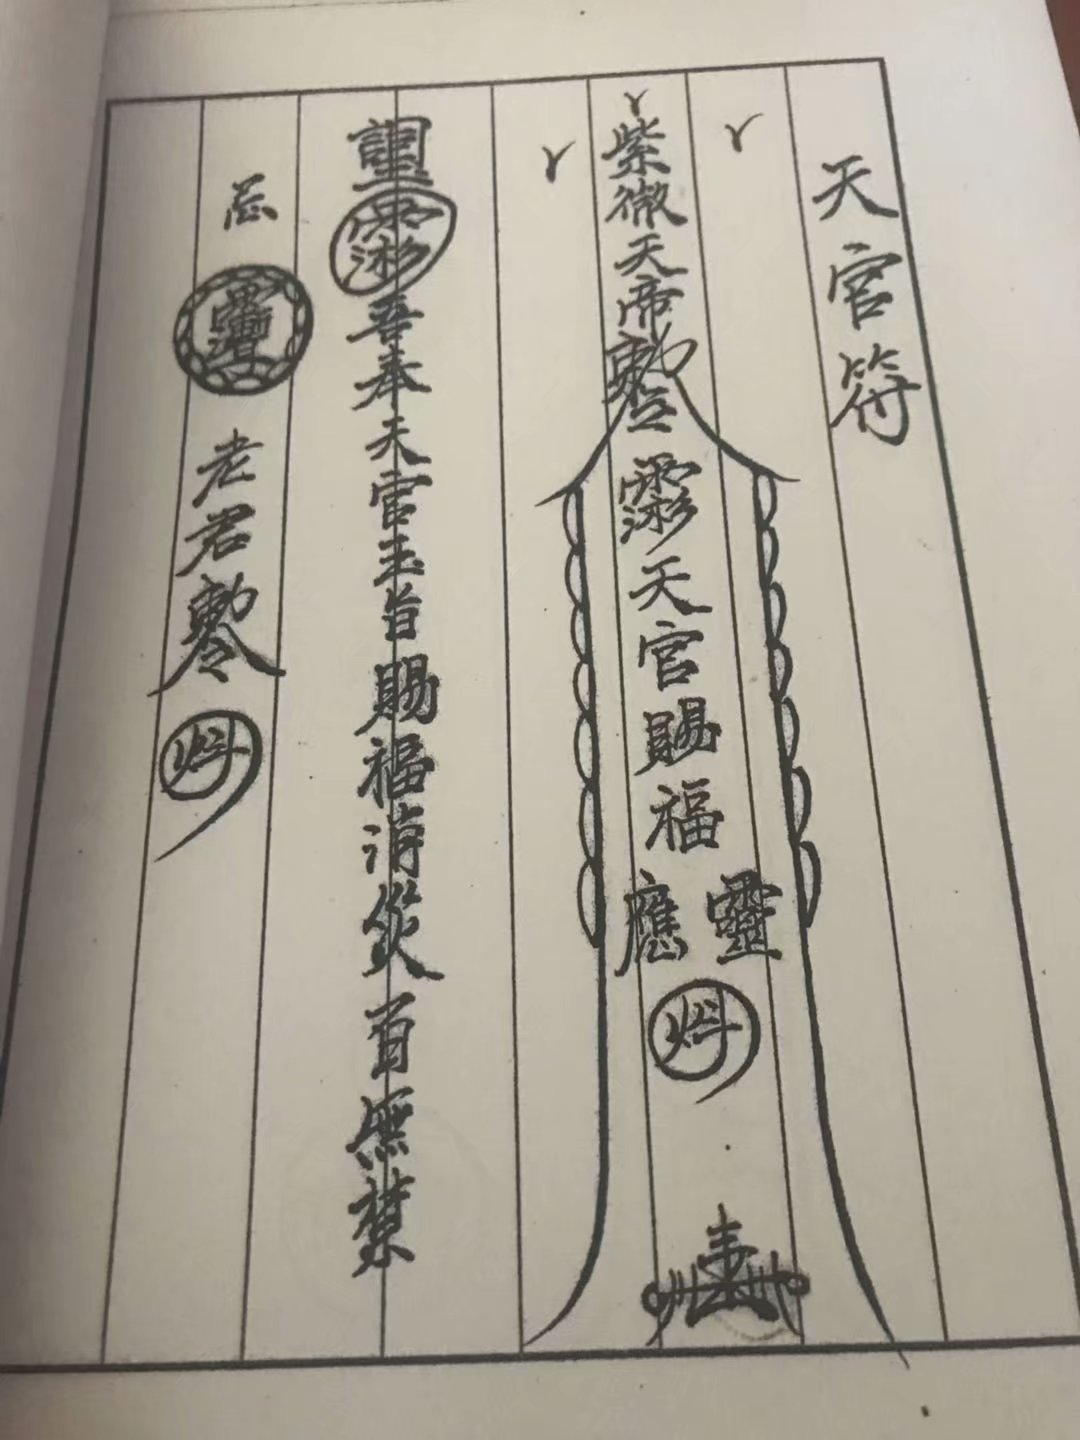 天官符
紫微天帝勅令
天官賜福
靈應
吾奉天官玉旨賜福消災百無禁
忌
老君勅令